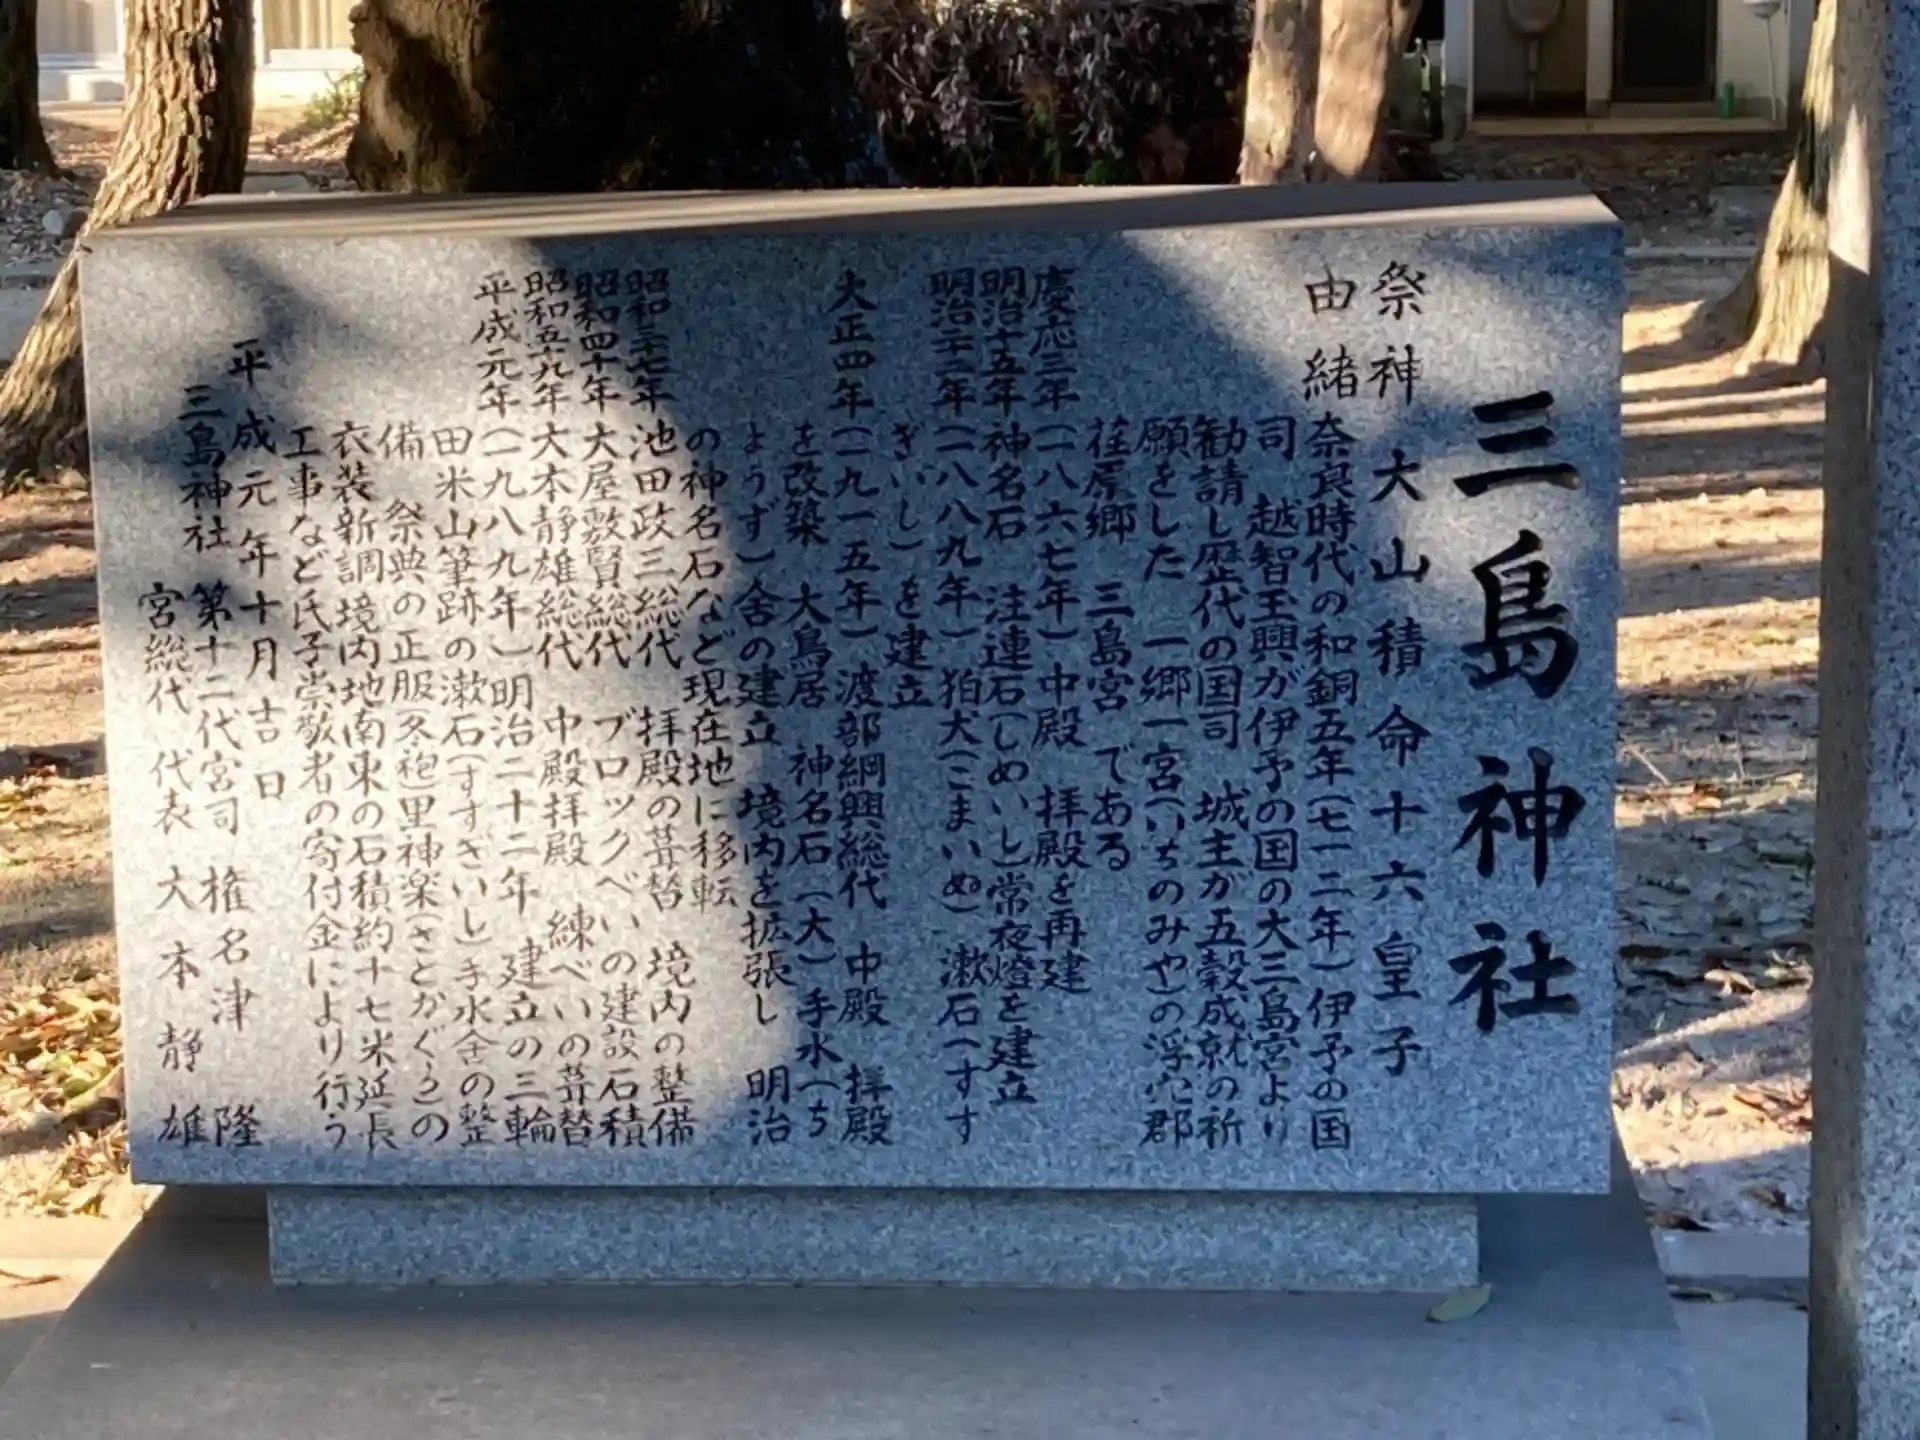 三島神社
祭神 大山積命十六皇子
由緒 奈良時代の和銅五年(七一二年)伊予の国
司 越智玉興が伊予の国の大三島宮より
勧請し歴代の国司 城主が五穀成就の祈
願をした 一郷一宮(いちのみや)の浮穴郡
荏原郷 三島宮 である
慶応三年(一八六七年)中殿 拝殿を再建
明治十五年 神名石 注連石(しめいし)常夜燈を建立
明治二十二年(一八八九年)狛犬(こまいぬ)漱石(すす
ぎいし)を建立
大正四年(一九一五年)渡部綱興総代 中殿 拝殿
を改築 大鳥居 神名石(大)手水(ち
ょうず)舎の建立 境内を拡張し 明治
の神名石など現在地に移転
昭和三十七年 池田政三総代 拝殿の葺替 境内の整備
昭和四十年 大屋敷賢総代 ブロックべいの建設石積
昭和五十九年 大本静雄総代 中殿拝殿 練べいの葺替
平成元年(一九八九年)明治二十二年 建立の三輪
田米山筆跡の漱石(すすぎいし)手水舎の整
備 祭典の正服冬袍里神楽(さとかぐら)の
衣装新調境内地南東の石積約十七米延長
工事など氏子崇敬者の寄付金により行う
平成元年十月吉日
三島神社 第十二代宮司 権名津 隆
宮総代 代表 大本静雄